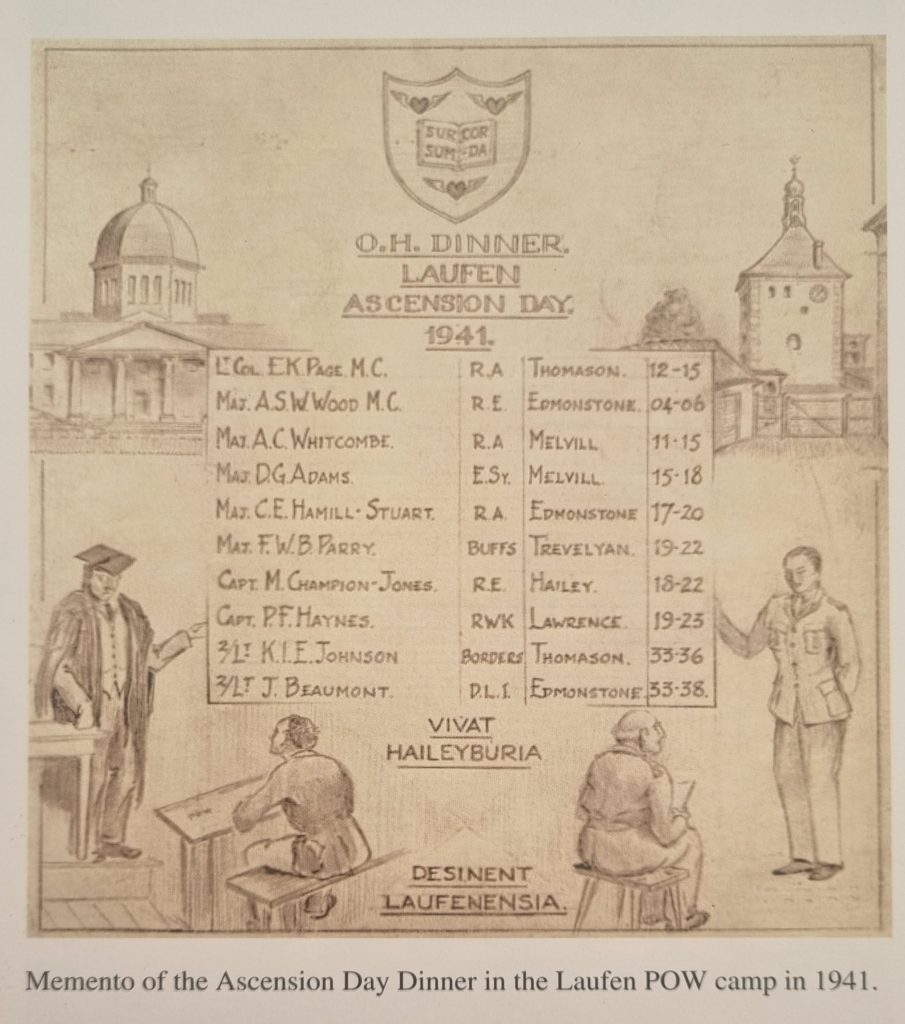 SUR COR
SUM-DA
O.H. DINNER.
LAUFEN
ASCENSION DAY.
1941.
LT COL. E.K. PAGE. M.C. R.A THOMASON. 12-15
MAJ. A.S.W. WOOD M.C. R.E. EDMONSTONE. 04-06
MAJ. A.C. WHITCOMBE. R.A MELVILL 11-15
MAJ. D.G. ADAMS. E.SY. MELVILL. 15-18
MAJ. C.E. HAMILL-STUART. R.A. EDMONSTONE 17-20
MAJ. F.W.B. PARRY. BUFFS TREVELYAN. 19-22
CAPT. M. CHAMPION-JONES. R.E. HAILEY. 18-22
CAPT. P.F. HAYNES. RWK LAWRENCE. 19-23
2/LT K.I.E. JOHNSON BORDERS THOMASON. 33-36
2/LT J. BEAUMONT. D.L.I. EDMONSTONE. 33-38.
VIVAT
HAILEYBURIA
DESINENT
LAUFENENSIA.
Memento of the Ascension Day Dinner in the Laufen POW camp in 1941.